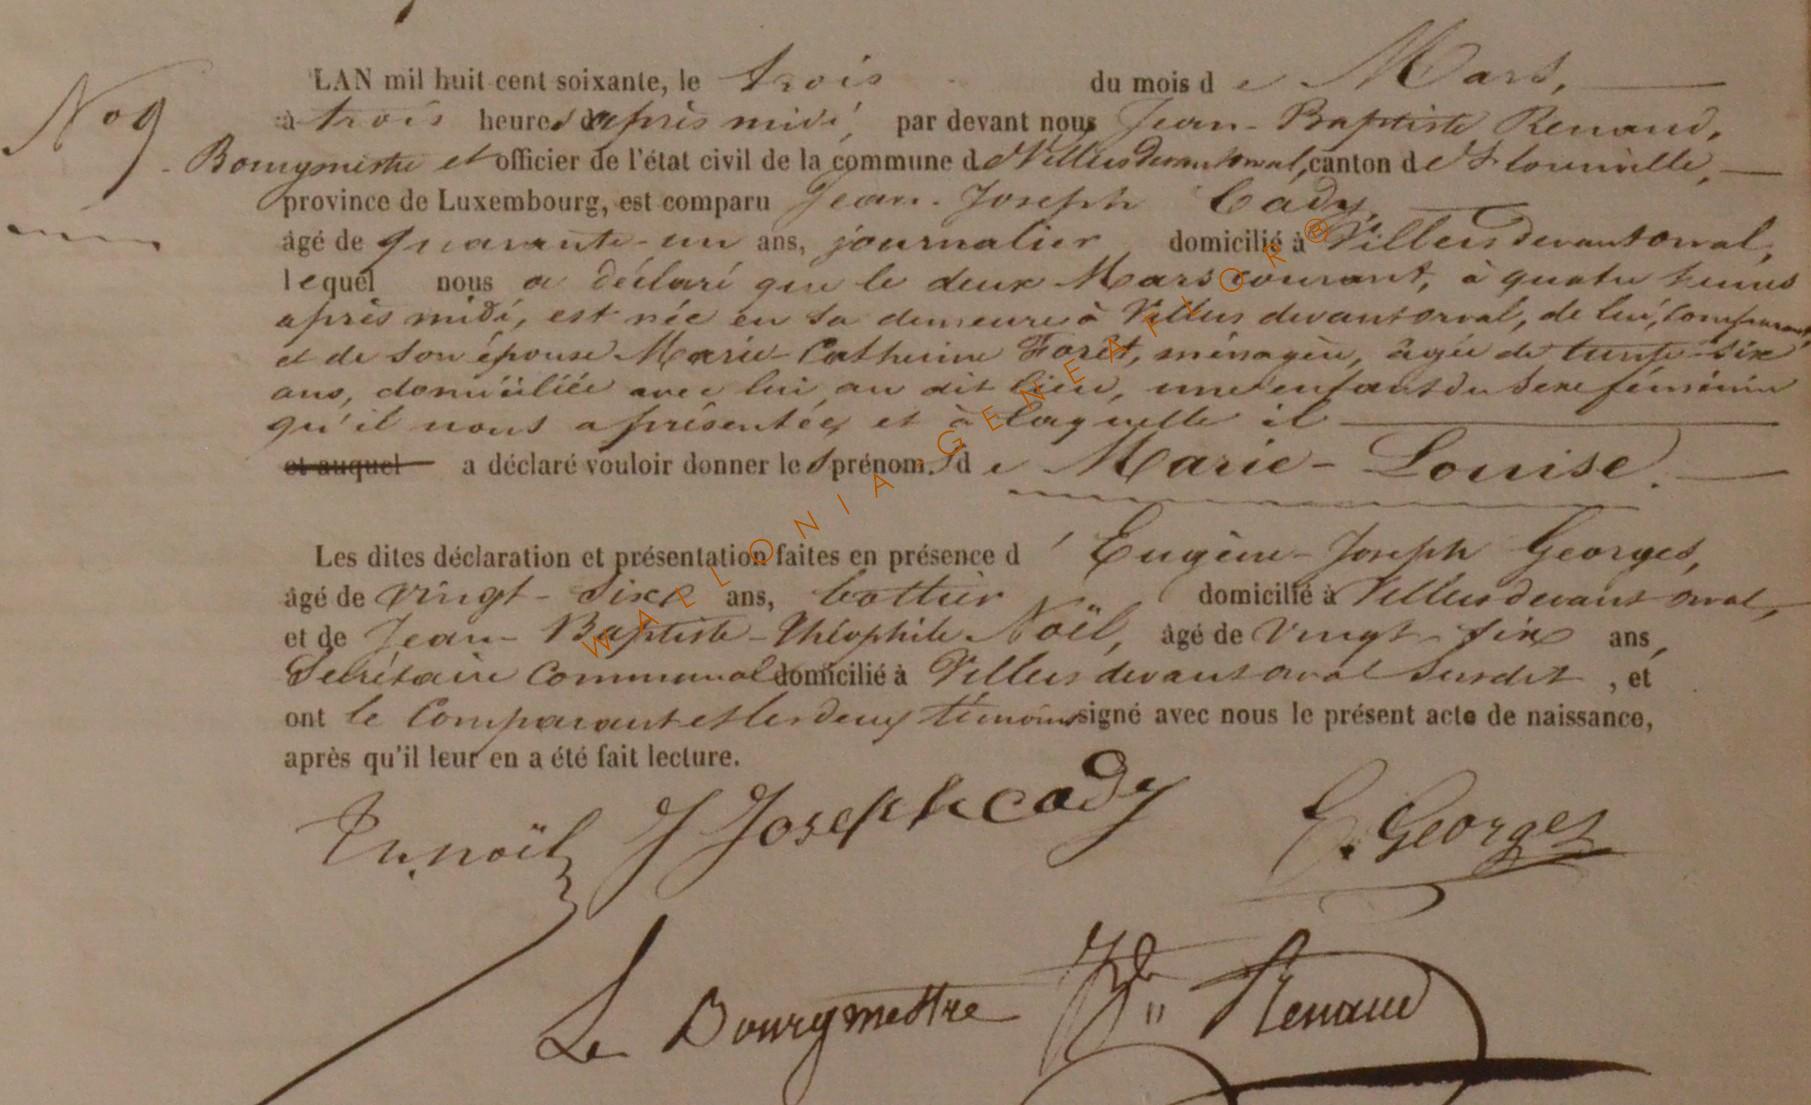 No 9
LAN mil huit cent soixante, le trois du mois de Mars,
à trois heures d'après midi, par devant nous Jean-Baptiste Renaud,
Bourgmestre et officier de l'état civil de la commune de Villers devant orval, canton de
province de Luxembourg, est comparu Jean-Joseph Cady,
âgé de quarante-un ans, journalier domicilié à Villers devant orval,
lequel nous a déclaré que le deux Mars courant, à quatre heures
après midi, est née en sa demeure à Villers devant orval, de lui, comparant,
et de son épouse Marie-Catherine Forêt, ménagère, âgée de trente-six
ans, domiciliée avec lui au dit lieu, une enfant du sexe féminin
qu'il nous a présentée, et à laquelle il
et auquel a déclaré vouloir donner les prénoms de Marie-Louise.
Les dites déclaration et présentation faites en présence d'Eugène-Joseph Georges,
âgé de vingt-six ans, bottier domicilié à Villers devant orval,
et de Jean-Baptiste-Théophile Noël, âgé de vingt-six ans,
Secrétaire Communal domicilié à Villers devant orval susdit, et
ont le Comparant et les deux témoins signé avec nous le présent acte de naissance,
après qu'il leur en a été fait lecture.
noël J Joseph cady E. Georges
Le Bourgmestre Renaud
WALLONIA GENEAFIOR®